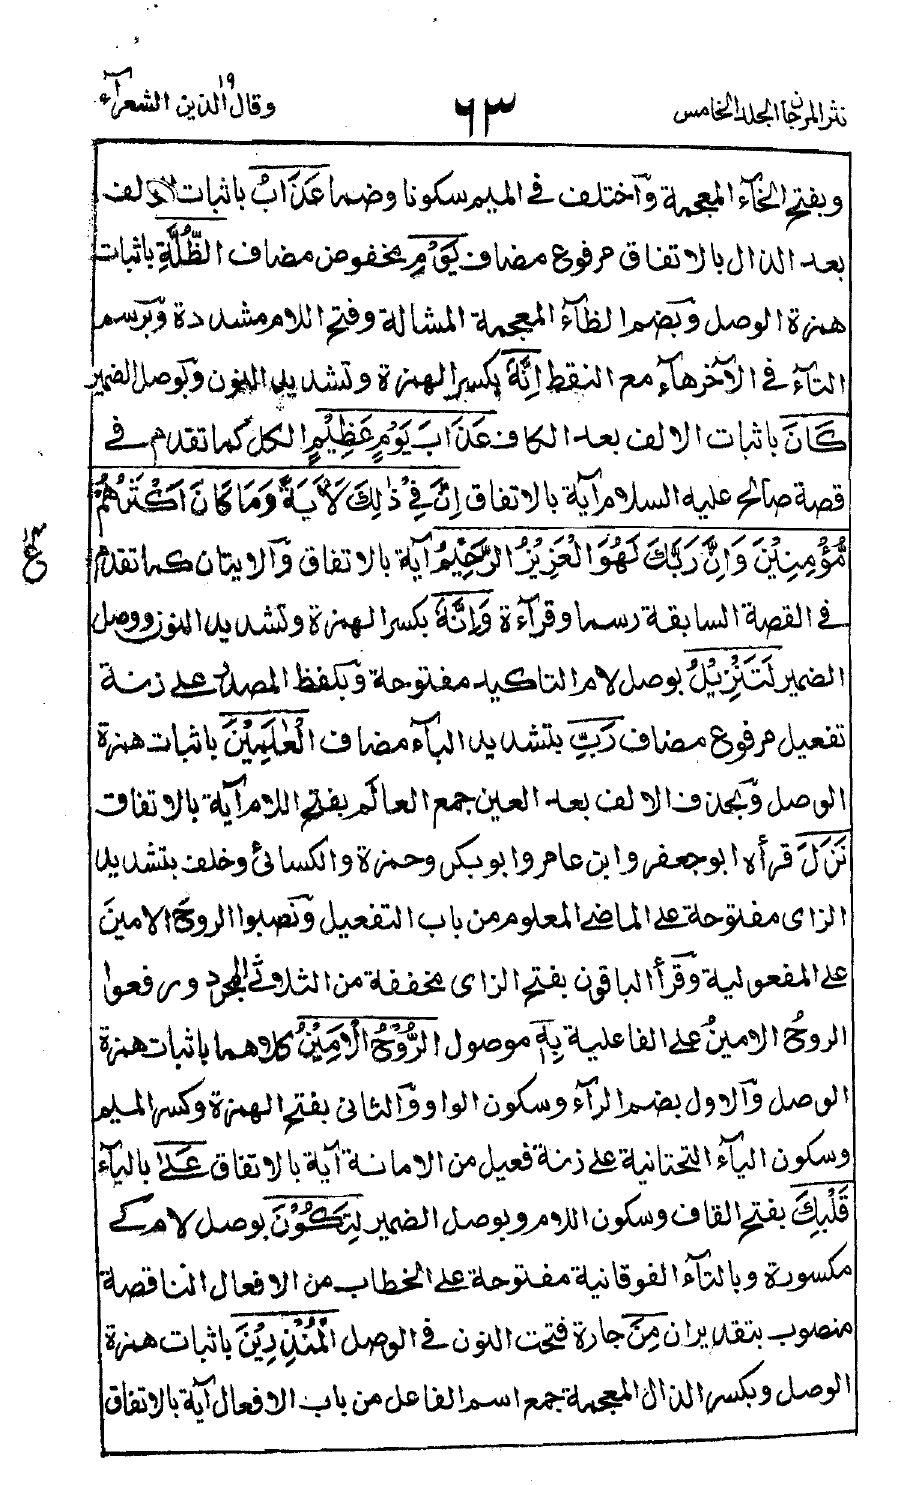 نثر المرجان الجلد الخامس
٦٣
وقال الذين ١٩ الشعرآء
وبفتح الخآء المعجمة وآختلف في الميم سكونا وضما عَذَابُ باثبات الالف
بعد الذال بالاتفاق مرفوع مضاف يَوْمِ مخفوض مضاف الظُّلَّةِ باثبات
همزة الوصل وبضم الظآء المعجمة المشالة وفتح اللام مشددة وبرسم
التآء في الآخر هآء مع النقط اِنَّهٗ بكسر الهمزة وتشديد النون وبوصل الضمير
كَانَ باثبات الالف بعد الكاف عَذَابَ يَوْمٍ عَظِيْمٍ الكل كما تقدم في
قصة صالح عليه السلام آية بالاتفاق اِنَّ فِيْ ذٰلِكَ لَاٰيَةً وَمَا كَانَ اَكْثَرُهُمْ
مُّؤْمِنِيْنَ وَاِنَّ رَبَّكَ لَهُوَ الْعَزِيْزُ الرَّحِيْمُ آية بالاتفاق وآلايتان كما تقدم
في القصة السابقة رسما وقرآءة وَاِنَّهٗ بكسر الهمزة وتشديد النون ووصل
الضمير لَتَنْزِيْلُ بوصل لام التاكيد مفتوحة وبلفظ المصدر على زنة
تفعيل مرفوع مضاف رَبِّ بتشديد البآء مضاف الْعٰلَمِيْنَ باثبات همزة
الوصل وبحذف الالف بعد العين جمع العالَم بفتح اللام آية بالاتفاق
نَزَلَ قرأه ابو جعفر وابن عامر وابو بكر وحمزة والكسائي وخلف بتشديد
الزاى مفتوحة على الماضي المعلوم من باب التفعيل ونصبوا الروحَ الامينَ
على المفعولية وقرأ الباقون بفتح الزاى مخففة من الثلاثي المجرد ورفعوا
الروحُ الامينُ على الفاعلية بِهِ موصول الرُّوْحُ الْاَمِيْنُ كلاهما باثبات همزة
الوصل وآلاول بضم الرآء وسكون الواو وآلثاني بفتح الهمزة وكسر الميم
وسكون اليآء التحتانية على زنة فعيل من الامانة آية بالاتفاق عَلىٰ بالياء
قَلْبِكَ بفتح القاف وسكون اللام وبوصل الضمير لِتَكُوْنَ بوصل لام كے
مكسورة وبالتآء الفوقانية مفتوحة على الخطاب من الافعال الناقصة
منصوب بتقدير ان مِنَ جارة فتحت النون في الوصل الْمُنْذِرِيْنَ باثبات همزة
الوصل وبكسر الذال المعجمة جمع اسم الفاعل من باب الافعال آية بالاتفاق